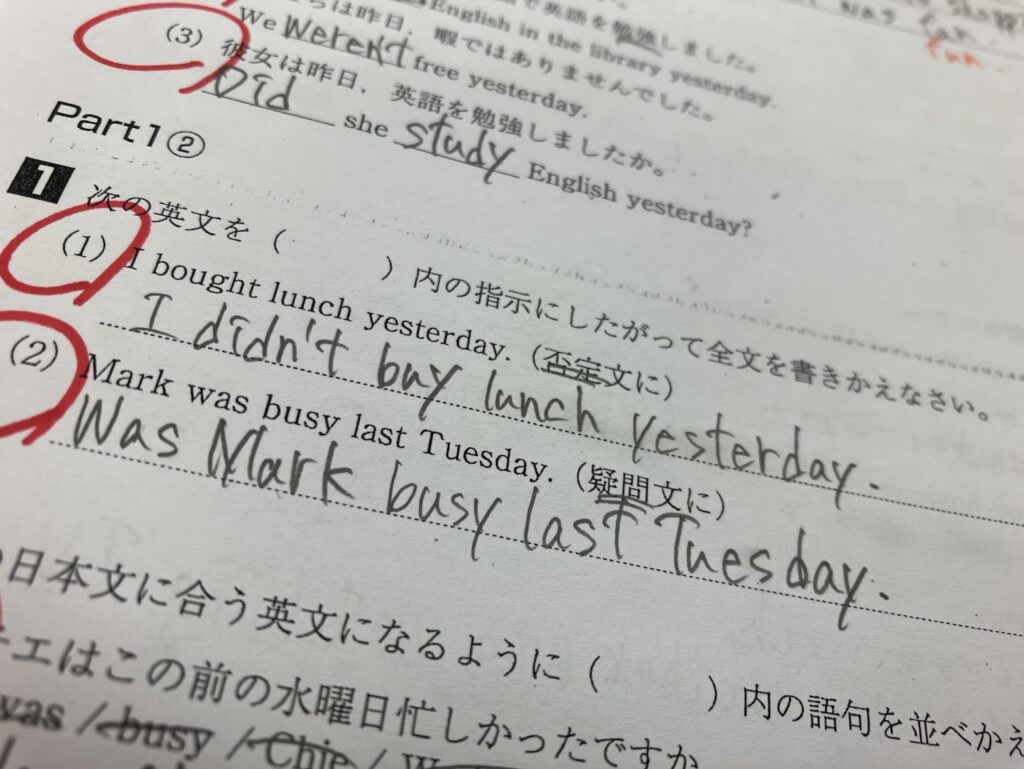 で英語を勉強しました。
English in the library yesterday.
ちは昨日，暇ではありませんでした。
We weren't free yesterday.
(3) 彼女は昨日，英語を勉強しましたか。
Did she study English yesterday?
was fun.
fun
Part1②
1 次の英文を（　　）内の指示にしたがって全文を書きかえなさい。
(1) I bought lunch yesterday.（否定文に）
I didn't buy lunch yesterday.
(2) Mark was busy last Tuesday.（疑問文に）
Was Mark busy last Tuesday.
日本文に合う英文になるように（　　）内の語句を並べかえ
チエはこの前の水曜日忙しかったですか
was / busy / Chie / W